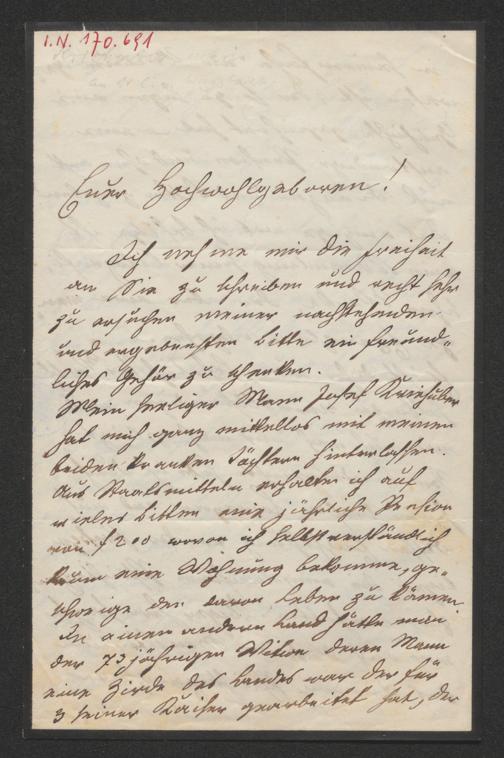 I.N. 170.691
Euer Hochwohlgeboren!
Ich nehme mir die Freiheit
an Sie zu schreiben und recht sehr
zu ersuchen meiner nachstehenden
und ergebensten Bitte ein freund„
liches Gehör zu schenken.
Mein seeliger Mann Josef Kriehuber
hat mich ganz mittellos mit meinen
beiden kranken Töchtern hinterlassen.
Aus Staatsmitteln erhalten ich auf
vieles Bitten eine jährliche Pension
von f 200 wovon ich selbstverständlich
kaum eine Wohnung bekomme, ge„
schweige den davon Leben zu können.
In einen andern Land hätte man
der 73 jährigen Witwe deren Mann
eine Zirde des Landes war der für
3 seiner Kaiser gearbeitet hat, der